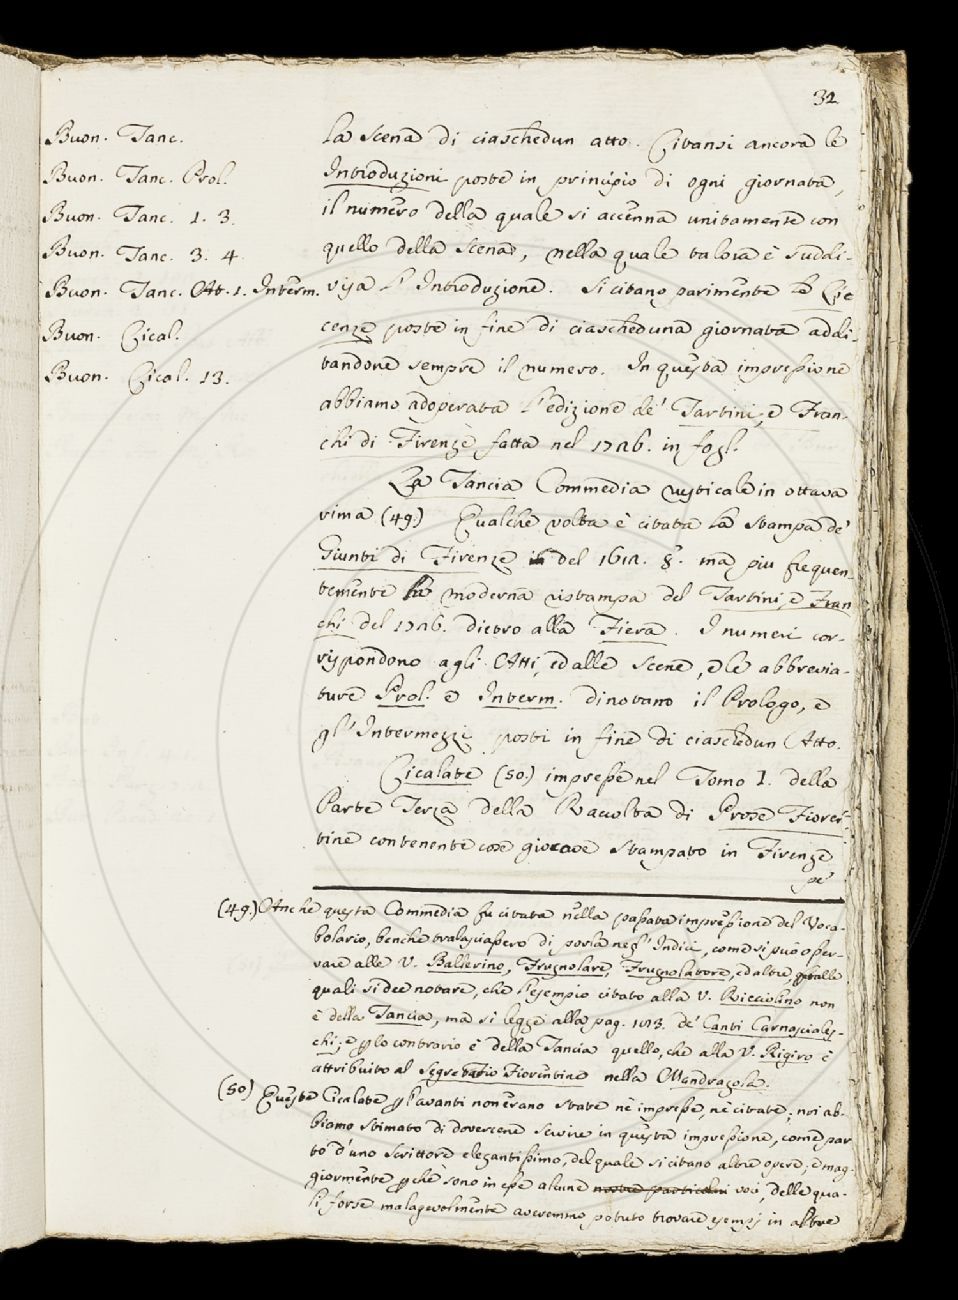 32
Buon. Tanc.
Buon. Tanc. Prol.
Buon. Tanc. 1. 3.
Buon. Tanc. 3. 4.
Buon. Tanc. At. 1. Interm.
Buon. Cical.
Buon. Cical. 13.
la scena di ciaschedun atto. Citansi ancora le
Introduzioni poste in principio di ogni giornata,
il numero della quale si accenna unitamente con
quello della scena, nella quale talora è suddi-
visa l'Introduzione. Si citano parimente le Lic
cenze poste in fine di ciascheduna giornata addi-
tandone sempre il numero. In questa impressione
abbiamo adoperata l'edizione de' Tartini, e Fran-
chi di Firenze fatta nel 1726. in fogl.
La Tancia Commedia rusticale in ottava
rima (49.) Qualche volta è citata la stampa de'
Giunti di Firenze del 1612. 8.° ma più frequen-
temente la moderna ristampa del Tartini, e Fran
chi del 1726. dietro alla Fiera. I numeri cor-
rispondono agli Atti, ed alle scene, e le abbrevia-
ture Prol. e Interm. dinotano il Prologo, e
gl'Intermezzi posti in fine di ciaschedun Atto.
Cicalate (50.) impresse nel Tomo I. della
Parte Terza della Raccolta di Prose Fioren-
tine contenente cose giocose stampato in Firenze
pe'
(49.) Anche questa Commedia fu citata nella passata impressione del Voca-
bolario, benchè tralasciassero di porla negl'Indici, come si può osser-
vare alle V. Ballerino, Frugnolare, Frugnolatore, ed altre, alle
quali si dee notare, che l'esempio citato alla V. Ricciolino non
è della Tancia, ma si legge alla pag. 1013. de' Canti Carnasciales-
chi; e p lo contrario è della Tancia quello, che alla V. Rigiro è
attribuito al Segretario Fiorentino nella Mandragola.
(50) Queste Cicalate p l'avanti non erano state nè impresse, nè citate; noi ab-
biamo stimato di dovercene servire in questa impressione, come par
to d'uno scrittore elegantissimo, del quale si citano altre opere; e mag-
giormente p chè sono in esse alcune nostre particolari voci, delle qua-
li forse malagevolmente averemmo potuto trovare esempj in altre